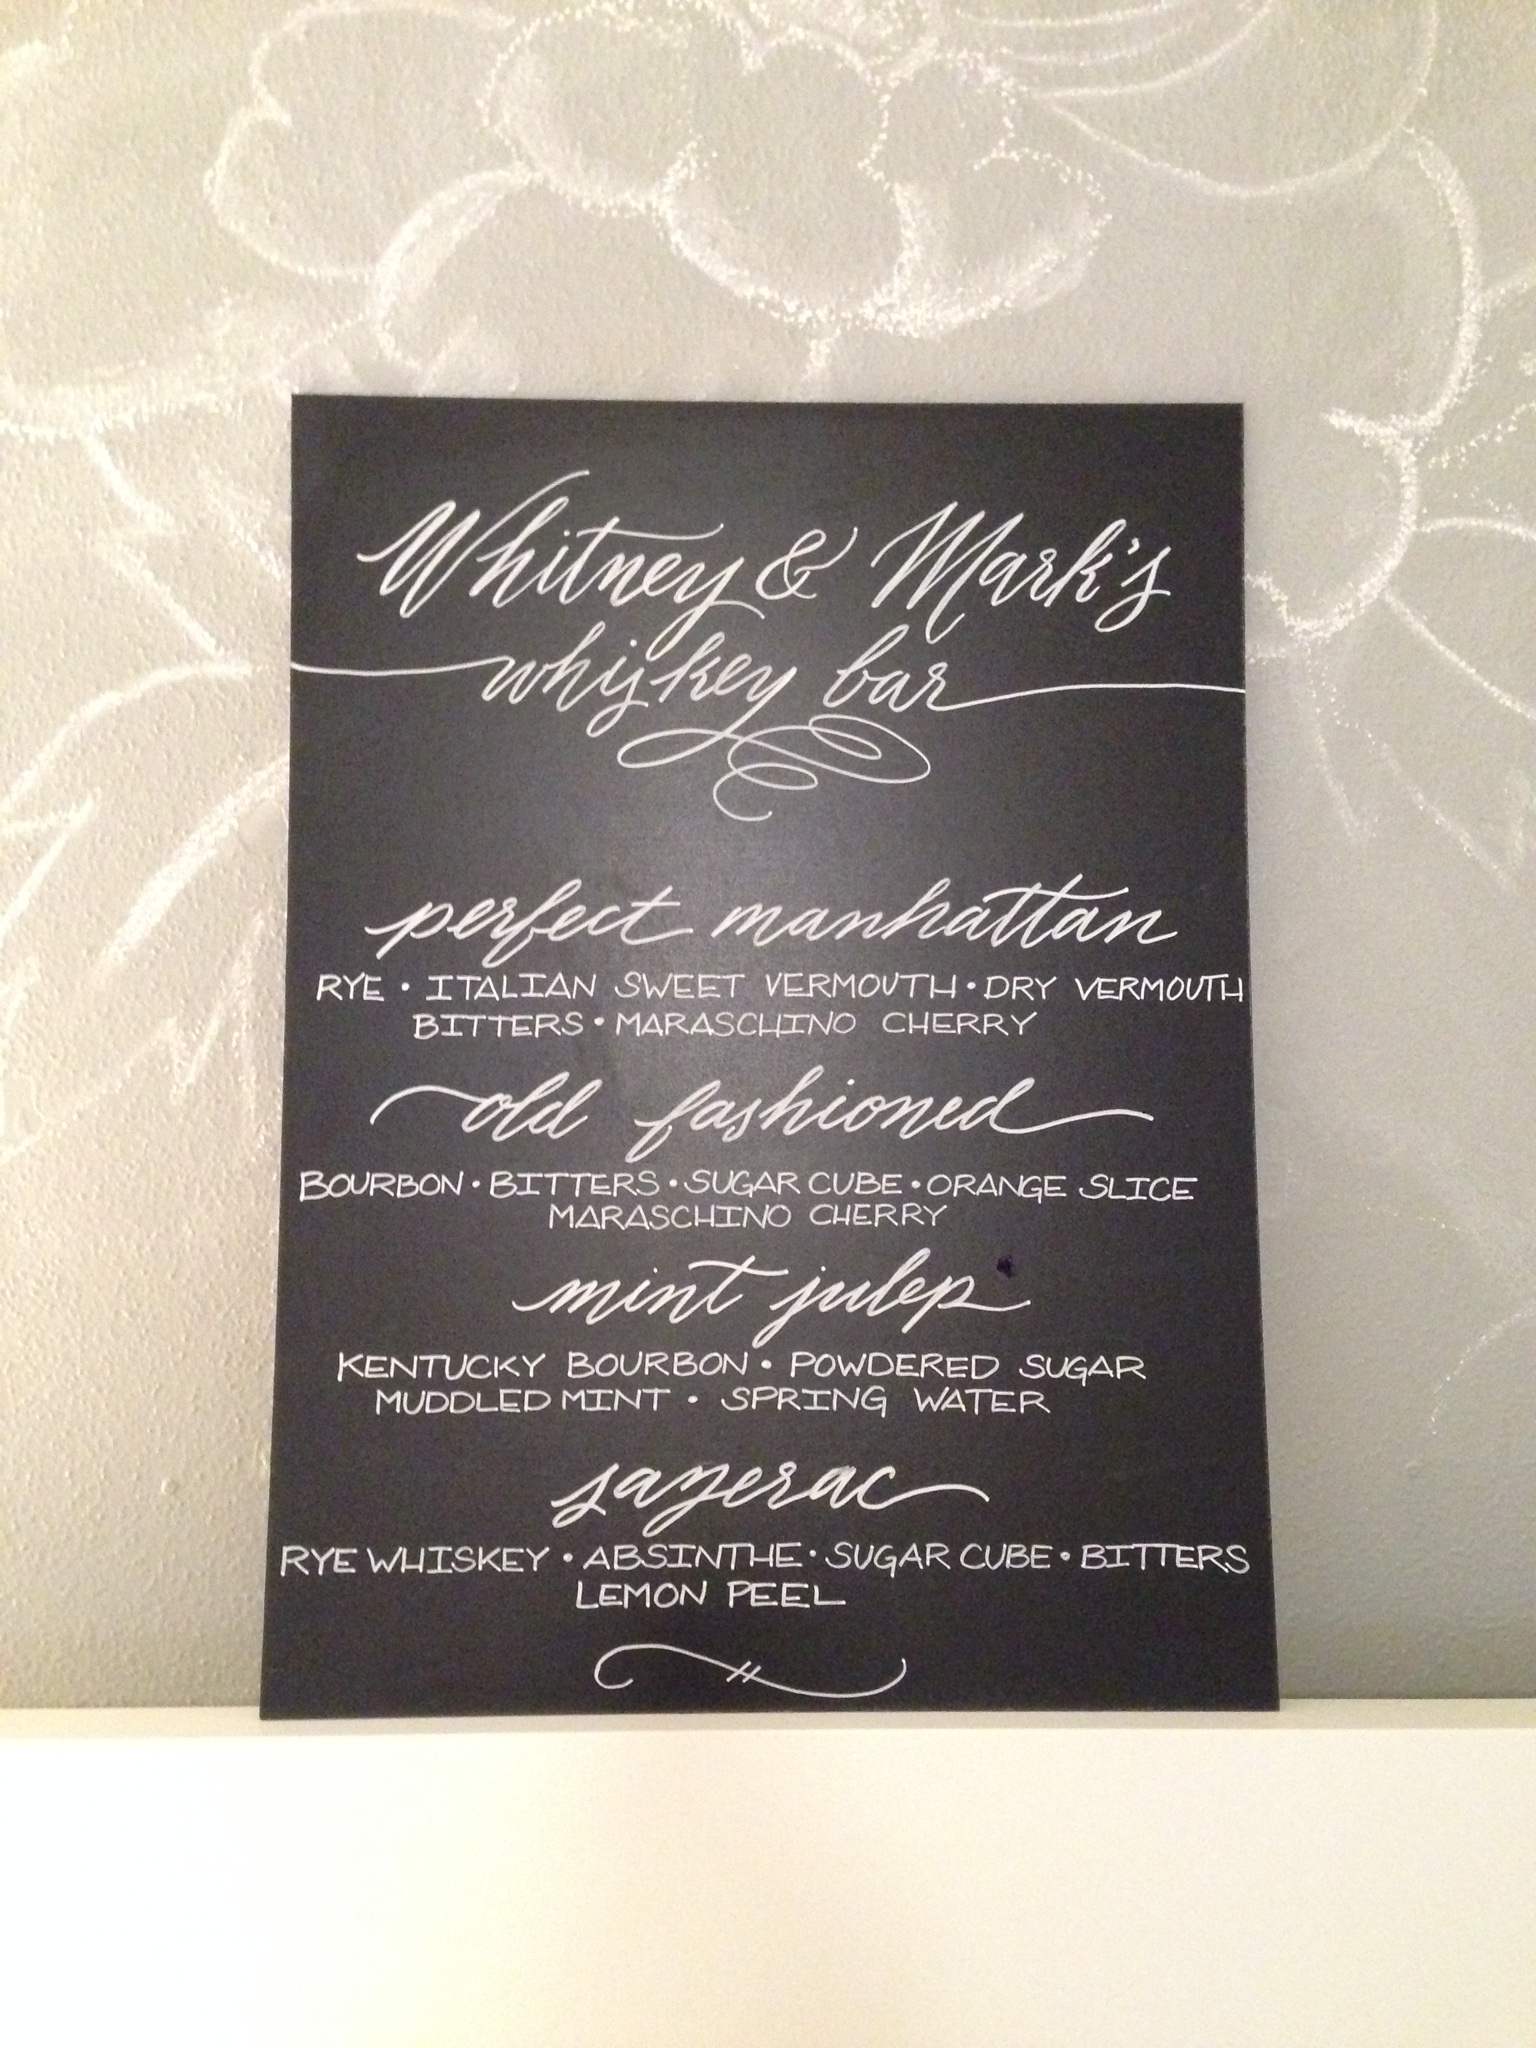 Whitney & Mark's
whiskey bar
perfect manhattan
RYE • ITALIAN SWEET VERMOUTH • DRY VERMOUTH
BITTERS • MARASCHINO CHERRY
old fashioned
BOURBON • BITTERS • SUGAR CUBE • ORANGE SLICE
MARASCHINO CHERRY
mint julep
KENTUCKY BOURBON • POWDERED SUGAR
MUDDLED MINT • SPRING WATER
sazerac
RYE WHISKEY • ABSINTHE • SUGAR CUBE • BITTERS
LEMON PEEL